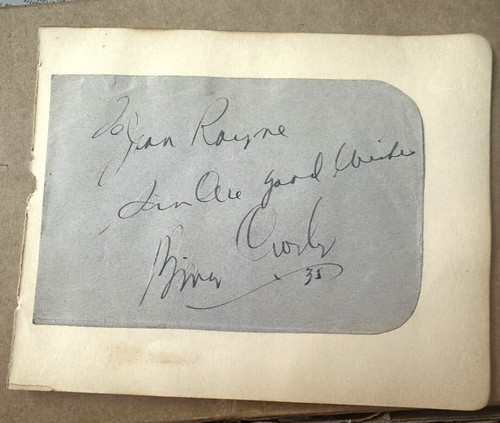 To Jean Rayne
Sincere good Wishes
Bing Crosby
35